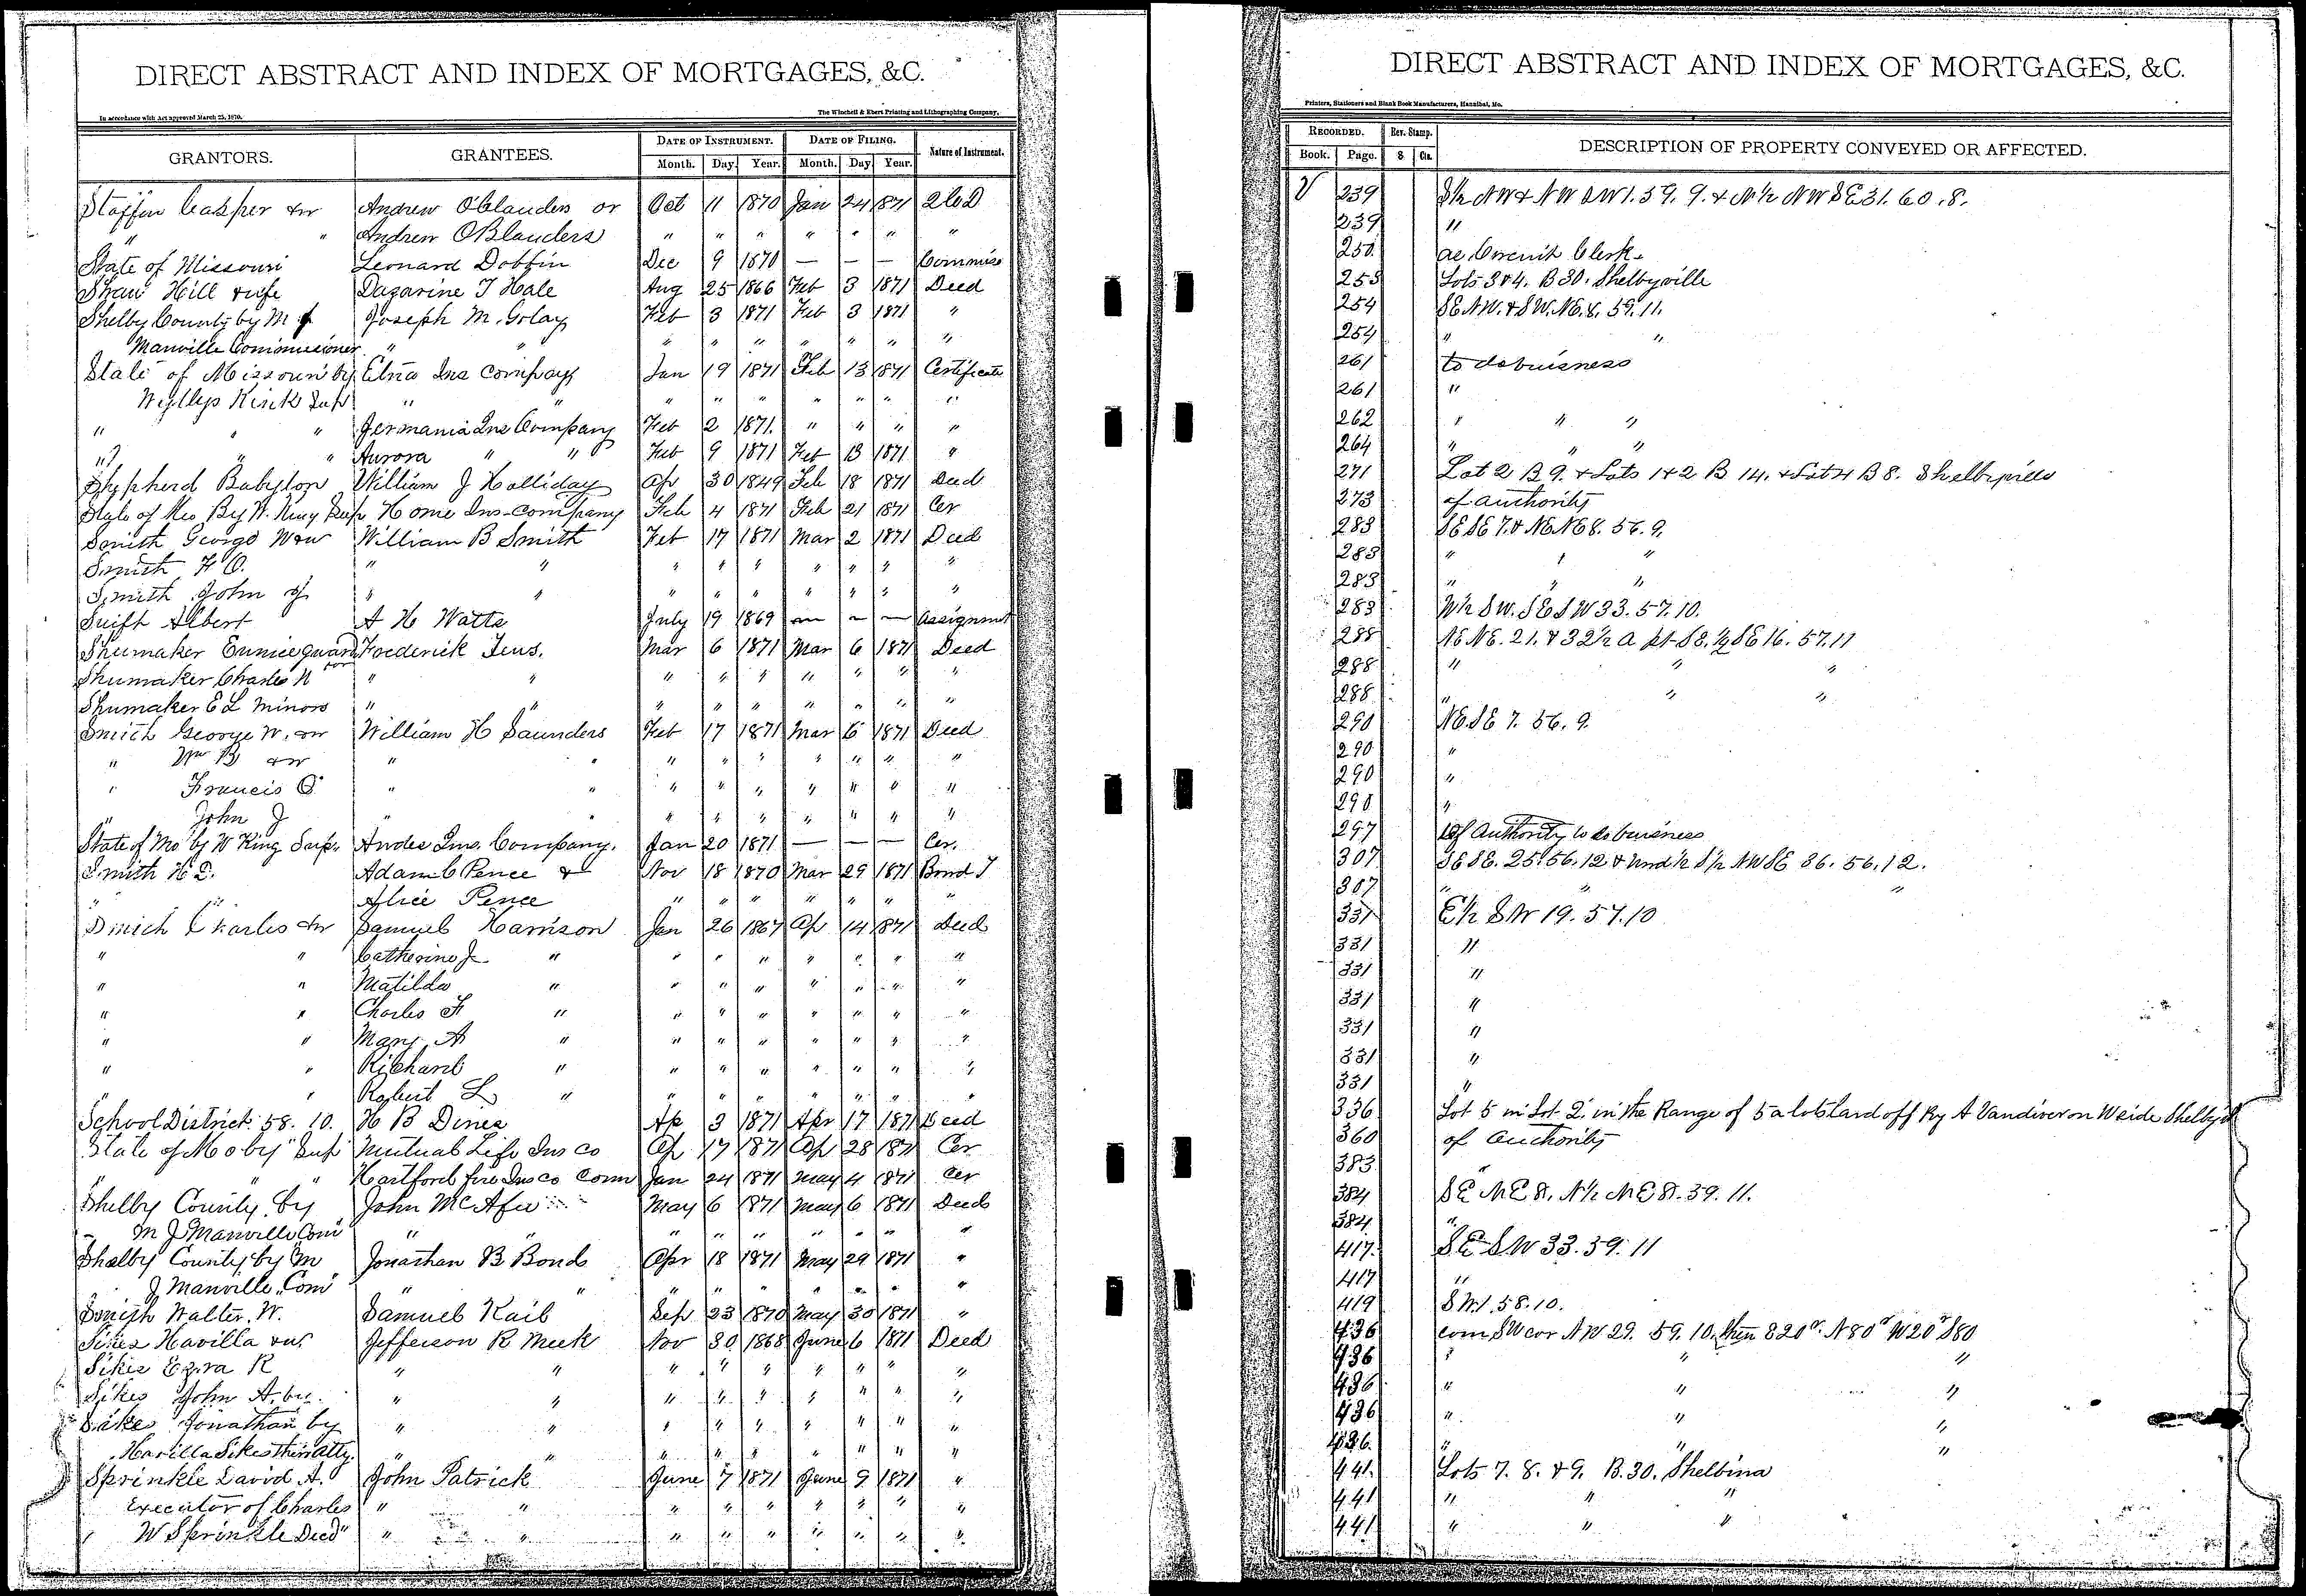 DIRECT ABSTRACT AND INDEX OF MORTGAGES, &C.
In accordance with Act approved March 25, 1870. The Winchell & Ebert Printing and Lithographing Company,
GRANTORS. GRANTEES. DATE OF INSTRUMENT. DATE OF FILING. Nature of Instrument.
Month. Day. Year. Month. Day Year.
Casper &w Andrew OBlanders or Oct 11 1870 Jan 24 1871 2 C D
" " Andrew OBlanders " " " " " " "
State of Missouri Leonard Dobbin Dec 9 1870 — — — Commiss
Shaw Hill & wife Dazarine T Hale Aug 25 1866 Feb 3 1871 Deed
Shelby County by M J Joseph M. Golay Feb 3 1871 Feb 3 1871 "
Manville Commissioner " " " " " " " " "
State of Missouri by Etna Ins Company Jan 19 1871 Feb 13 1871 Certificate
Wyllys King Sup " " " " " " " " "
" " " Germania Ins Company Feb 2 1871. " " " "
" " " Aurora " " Feb 9 1871 Feb 13 1871 "
Shepherd Babylon William J Holliday Ap 30 1849 Feb 18 1871 Deed
State of Mo By W. King Sup Home Ins-Company Feb 4 1871 Feb 21 1871 Cer
Smith George W &w William B Smith Feb 17 1871 Mar 2 1871 Deed
Smith F O. " " " " " " " " "
Smith John J " " " " " " " " "
Swift Albert A H Watts July 19 1869 — — — Assignmt
Shumaker Eunice guard Frederick Tens. Mar 6 1871 Mar 6 1871 Deed
Shumaker Charles N " " " " " " " " "
Shumaker E L Minors " " " " " " " " "
Smith George W. &w William H Saunders Feb 17 1871 Mar 6 1871 Deed
" Wm B &w " " " " " " " " "
" Francis O " " " " " " " " "
" John J " " " " " " " " "
State of Mo by W King Sup. Andes Ins. Company. Jan 20 1871 — — — Cer.
Smith H D. Adam C Pence & Nov 18 1870 Mar 29 1871 Bond T
" " Alice Pence " " " " " " "
Smith Charles &w Samuel Harrison Jan 26 1867 Ap 14 1871 Deed
" " Catherine J. " " " " " " " "
" " Matilda " " " " " " " "
" " Charles F " " " " " " " "
" " Mary A " " " " " " " "
" " Richard " " " " " " " "
" " Robert L " " " " " " " "
School District. 58. 10. H B Dines Ap 3 1871 Apr 17 1871 Deed
State of Mo by Sup Mutual Life Ins Co Ap 17 1871 Ap 28 1871 Cer
" " Hartford fire Ins Co Conn Jan 24 1871 May 4 1871 Cer
Shelby County by John McAfee May 6 1871 May 6 1871 Deed
M J Manville Com " " " " " " " " "
Shelby County by M Jonathan B Bonds Apr 18 1871 May 29 1871 "
J Manville Com " " " " " " " " "
Smith Walter. W. Samuel Kail Sep 23 1870 May 30 1871 "
Sikes Havilla Jefferson R Meek Nov 30 1868 June 6 1871 Deed
Sikes Ezra R " " " " " " " " "
Sikes John A. by " " " " " " " " "
Sikes Jonathan by " " " " " " " " "
Havilla Sikes their atty. " " " " " " " " "
Sprinkle David A. John Patrick June 7 1871 June 9 1871 "
Executor of Charles " " " " " " " " "
W Sprinkle Decd " " " " " " " " "
DIRECT ABSTRACT AND INDEX OF MORTGAGES, &C.
Printers, Stationers and Blank Book Manufacturers, Hannibal, Mo.
RECORDED. Rev. Stamp. DESCRIPTION OF PROPERTY CONVEYED OR AFFECTED.
Book. Page. $ Cts.
V 239 S½ NW & NW SW 1. 59. 9. & N½ NW SE 31. 60. 8.
239 "
250 as Circuit Clerk
253 Lots 3 & 4. B 30. Shelbyville
254 SE NW. & SW. NE. 8. 59. 11.
254 " "
261 to do buisness
261 "
262 " " "
264 " " "
271 Lot 2 B 9. & Lots 1 & 2 B 14. & Lot 4 B 8. Shelbyville
273 of authority
283 SE SE 7. & NE NE 8. 56. 9.
283 " " "
283 " " "
283 W½ SW. SE SW 33. 57. 10.
288 NE NE. 21. & 32½ a pt SE. ½ SE 16. 57. 11
288 " " "
288 " " "
290 NE SE 7. 56. 9.
290 "
290 "
290 "
297 of Authority to do buisness
307 SE SE. 25. 56. 12 & und ½ S½ NW SE 36. 56. 12.
307 " " "
331 E½ SW 19. 57. 10
331 "
331 "
331 "
331 "
331 "
331 "
336 Lot 5 in Lot 2. in the Range of 5 a lots laid off by A Vandiver on W side Shelby
360 of Authority
383 "
384 SE NE 8. N½ NE 8. 59. 11.
384 "
417. SE SW 33. 59. 11
417 "
419 SW 1. 58. 10.
436 com SW cor NW 29. 59. 10. then E20r. N80r W20r S80
436 " " "
436 " " "
436 " " "
436. " " "
441. Lots 7. 8. & 9. B. 30. Shelbina
441 " " "
441 " " "